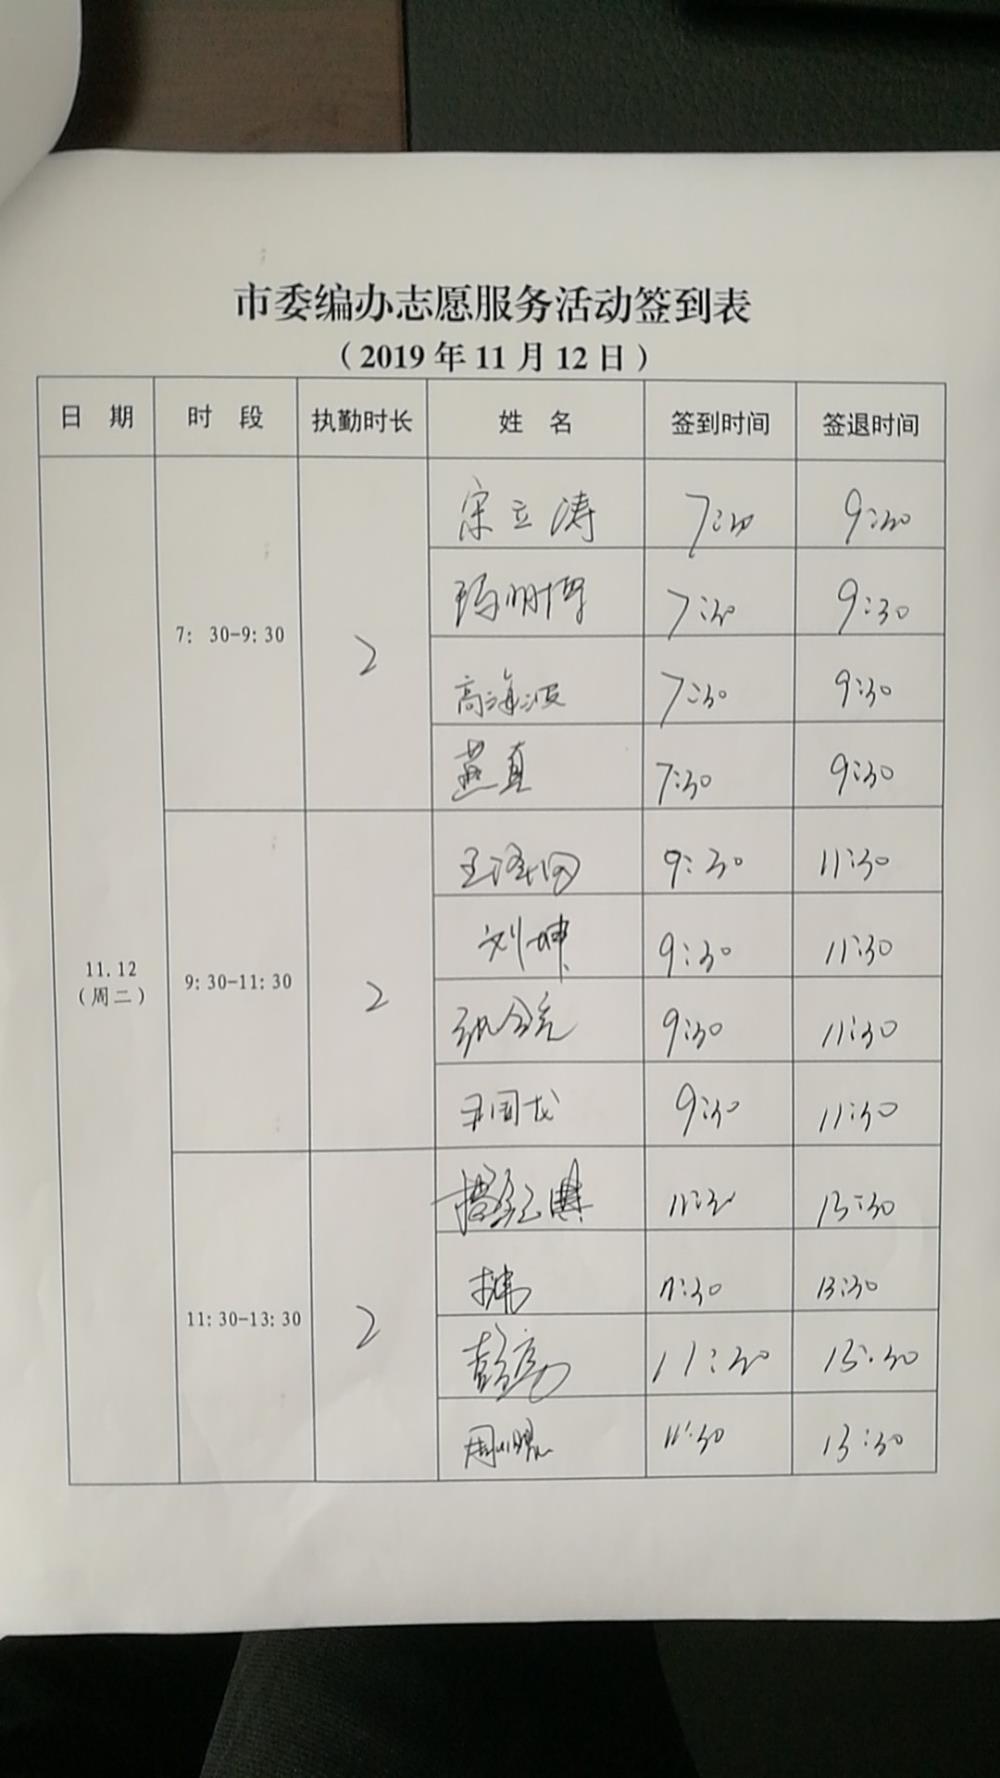 市委编办志愿服务活动签到表
（2019年11月12日）
日 期 时 段 执勤时长 姓 名 签到时间 签退时间
11.12
（周二）
7：30-9:30 2
宋立涛 7:30 9:30
7:30 9:30
高海波 7:30 9:30
燕真 7:30 9:30
9:30-11:30 2
9:30 11:30
刘坤 9:30 11:30
9:30 11:30
王国龙 9:30 11:30
11:30-13:30 2
11:30 13:30
11:30 13:30
彭亮 11:30 13:30
11:30 13:30